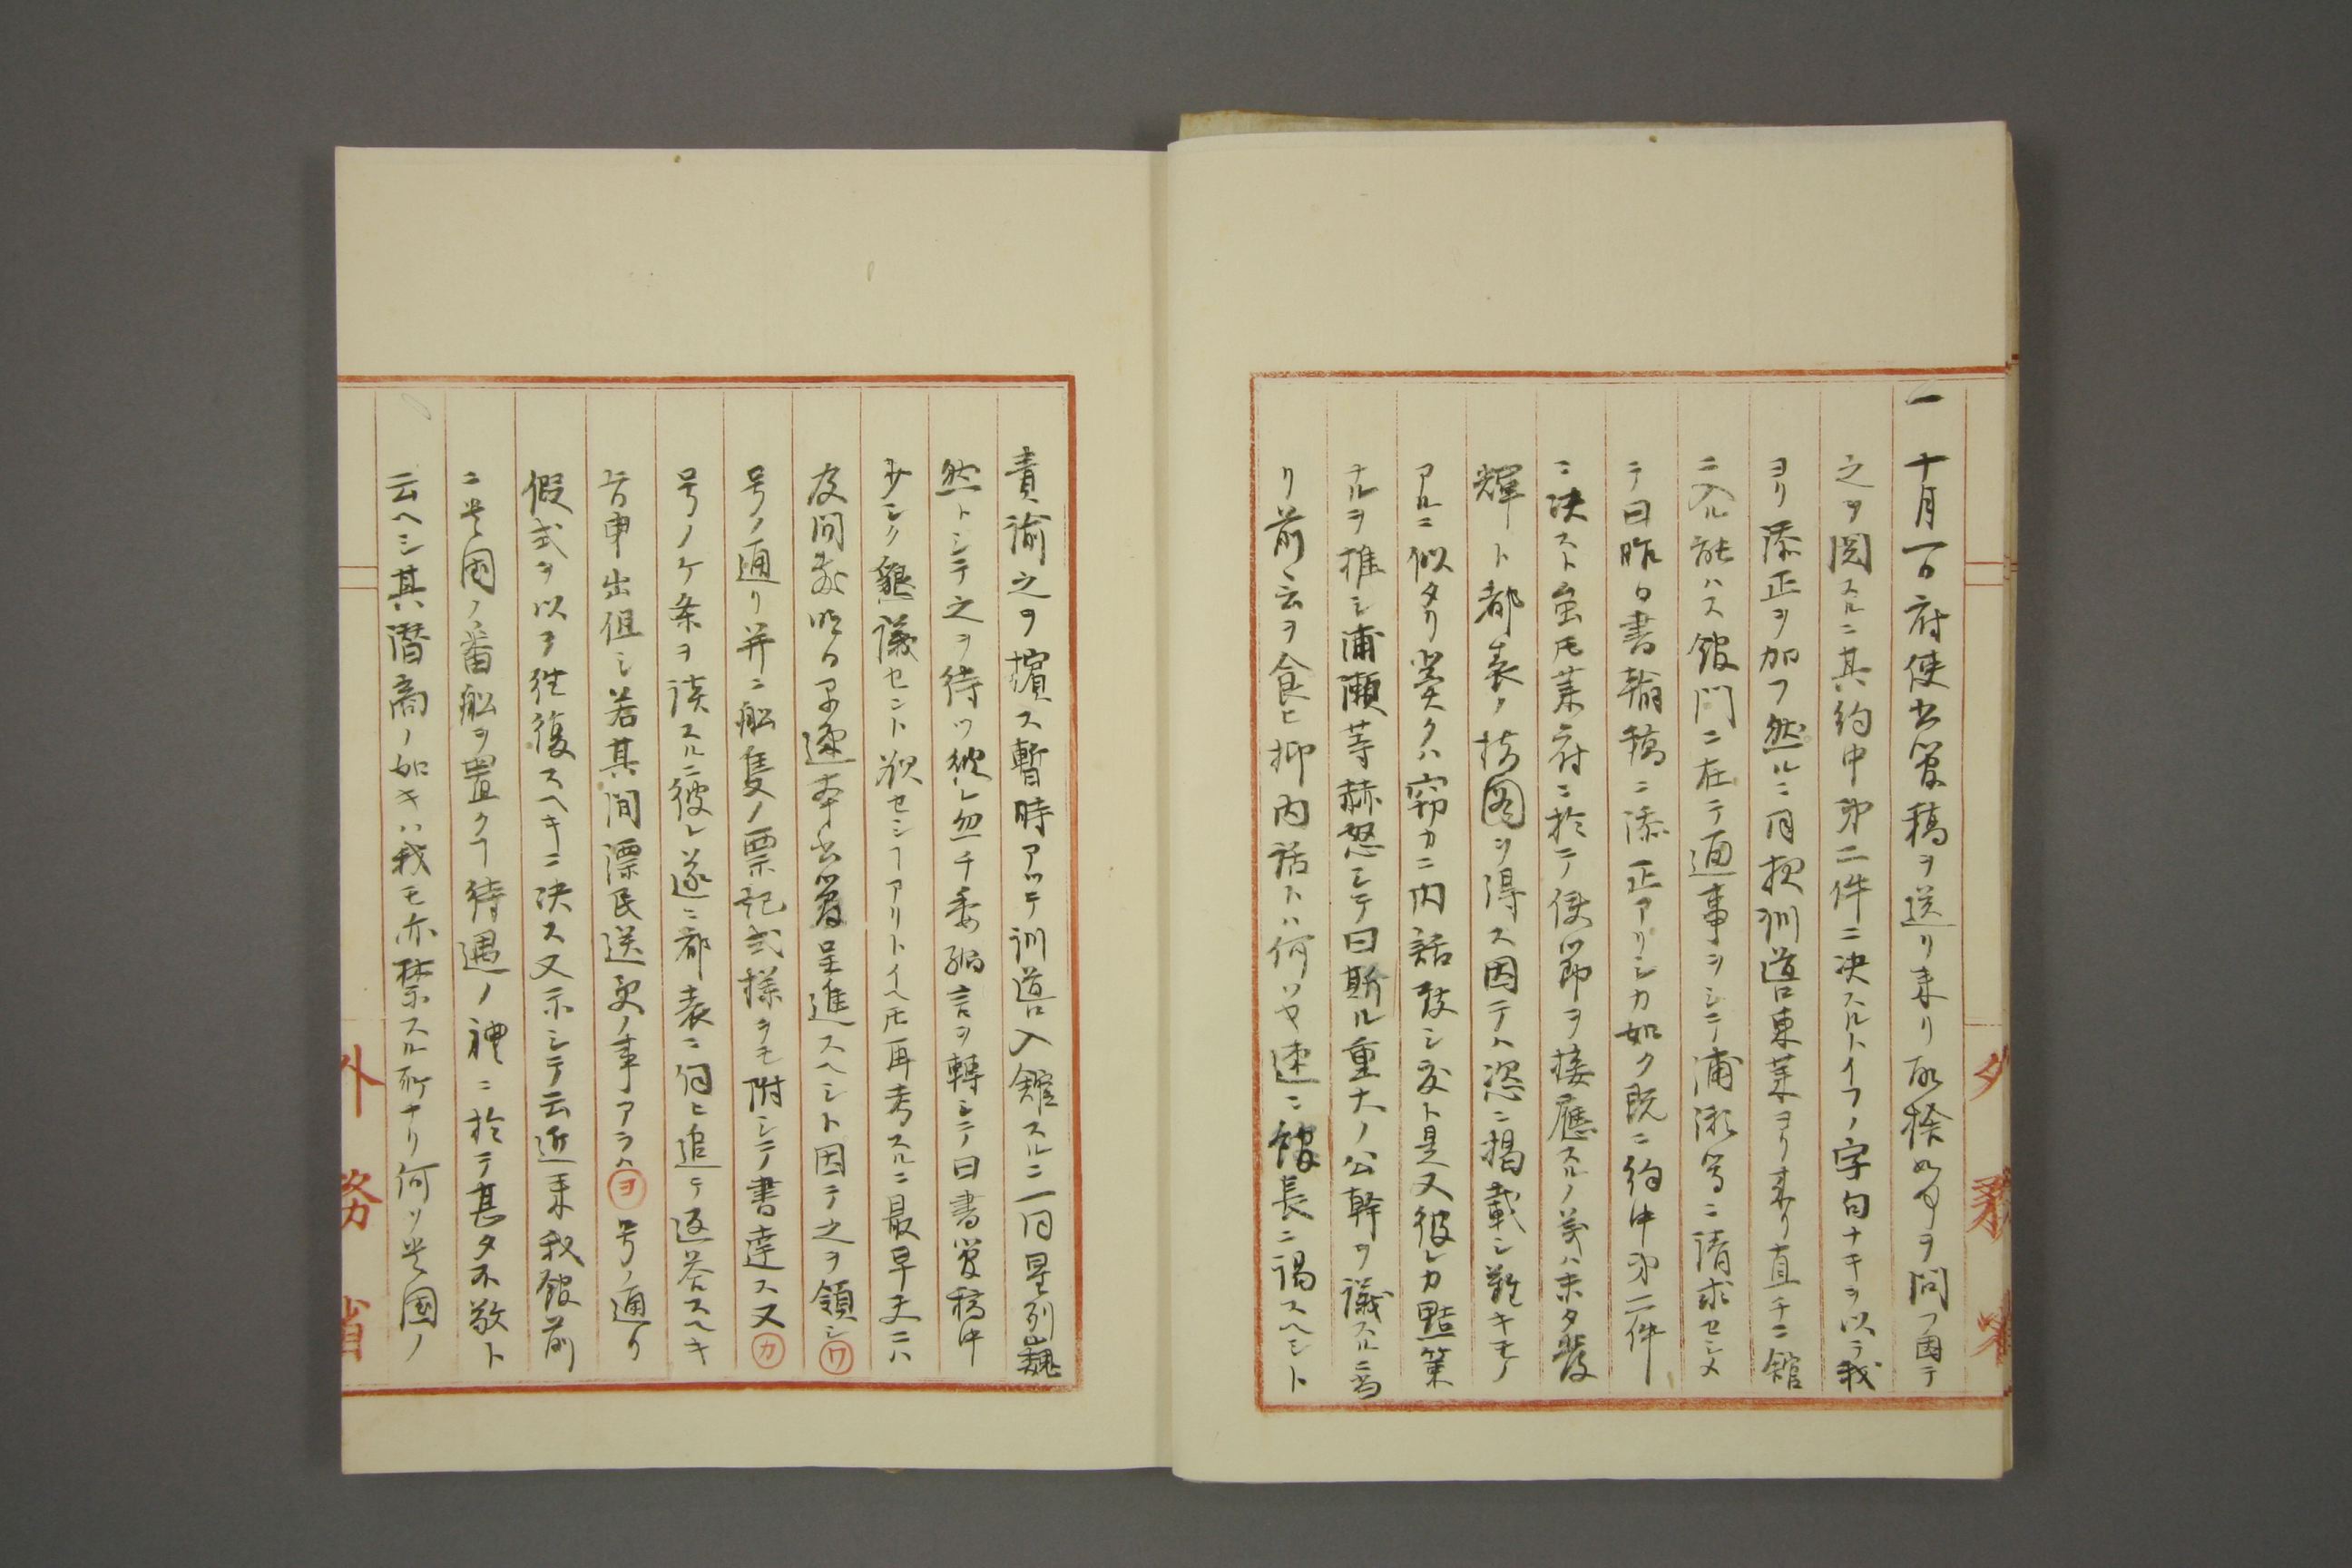 一 十月一日府使書契稿ヲ送リ来リ取捨如何ヲ問フ因テ
之ヲ閲スルニ其約中第二件ニ决スルトイフノ字句ナキヲ以テ我
ヨリ添正ヲ加フ然ルニ同 訓導東莱ヨリ来リ直チニ館
ニ入ル能ハス館門ニ在テ通事ヲシテ浦瀬等ニ請求セシメ
テ曰昨日書翰稿ニ添正アリシカ如ク既ニ約中第二件
ニ决スト虽モ莱府ニ於テ使節ヲ接應スルノ義ハ未タ発
輝ト都表ノ指図ヲ得ス因テハ遽ニ掲載シ難キモノ
アルニ似タリ冀クハ窃カニ内話致シ度ト是又彼レカ黠策
ナルヲ推シ浦瀬等赫怒シテ曰斯ル重大ノ公幹ヲ議スルニ当
リ前言ヲ食ヒ抑内話トハ何ソヤ速ニ館長ニ謁スヘシト
責諭之ヲ擯ス暫時アッテ訓導入館スルニ一同星列巍
然トシテ之ヲ待ツ彼レ忽チ委縮言ヲ轉シテ曰書契稿中
少シク懇議セント欲セシヿアリトイヘ𪜈再考スルニ最早夫ニハ
及間敷明日早速本書契呈進スヘシト因テ之ヲ領シ㋻
号ノ通リ并ニ船隻ノ票記式様ヲモ附シテ書達ス又㋕
号ノケ条ヲ談スルニ彼レ遂ニ都表ニ伺ヒ追テ返答スヘキ
旨申出但シ若其間漂民送受ノ事アラハ㋾号ノ通リ
假式ヲ以テ徃復スヘキニ决ス又示シテ云近来我館前
ニ貴国ノ番船ヲ置クヿ待遇ノ禮ニ於テ甚タ不敬ト
云ヘシ其潜商ノ如キハ我モ亦禁スル所ナリ何ソ貴国ノ
外務省